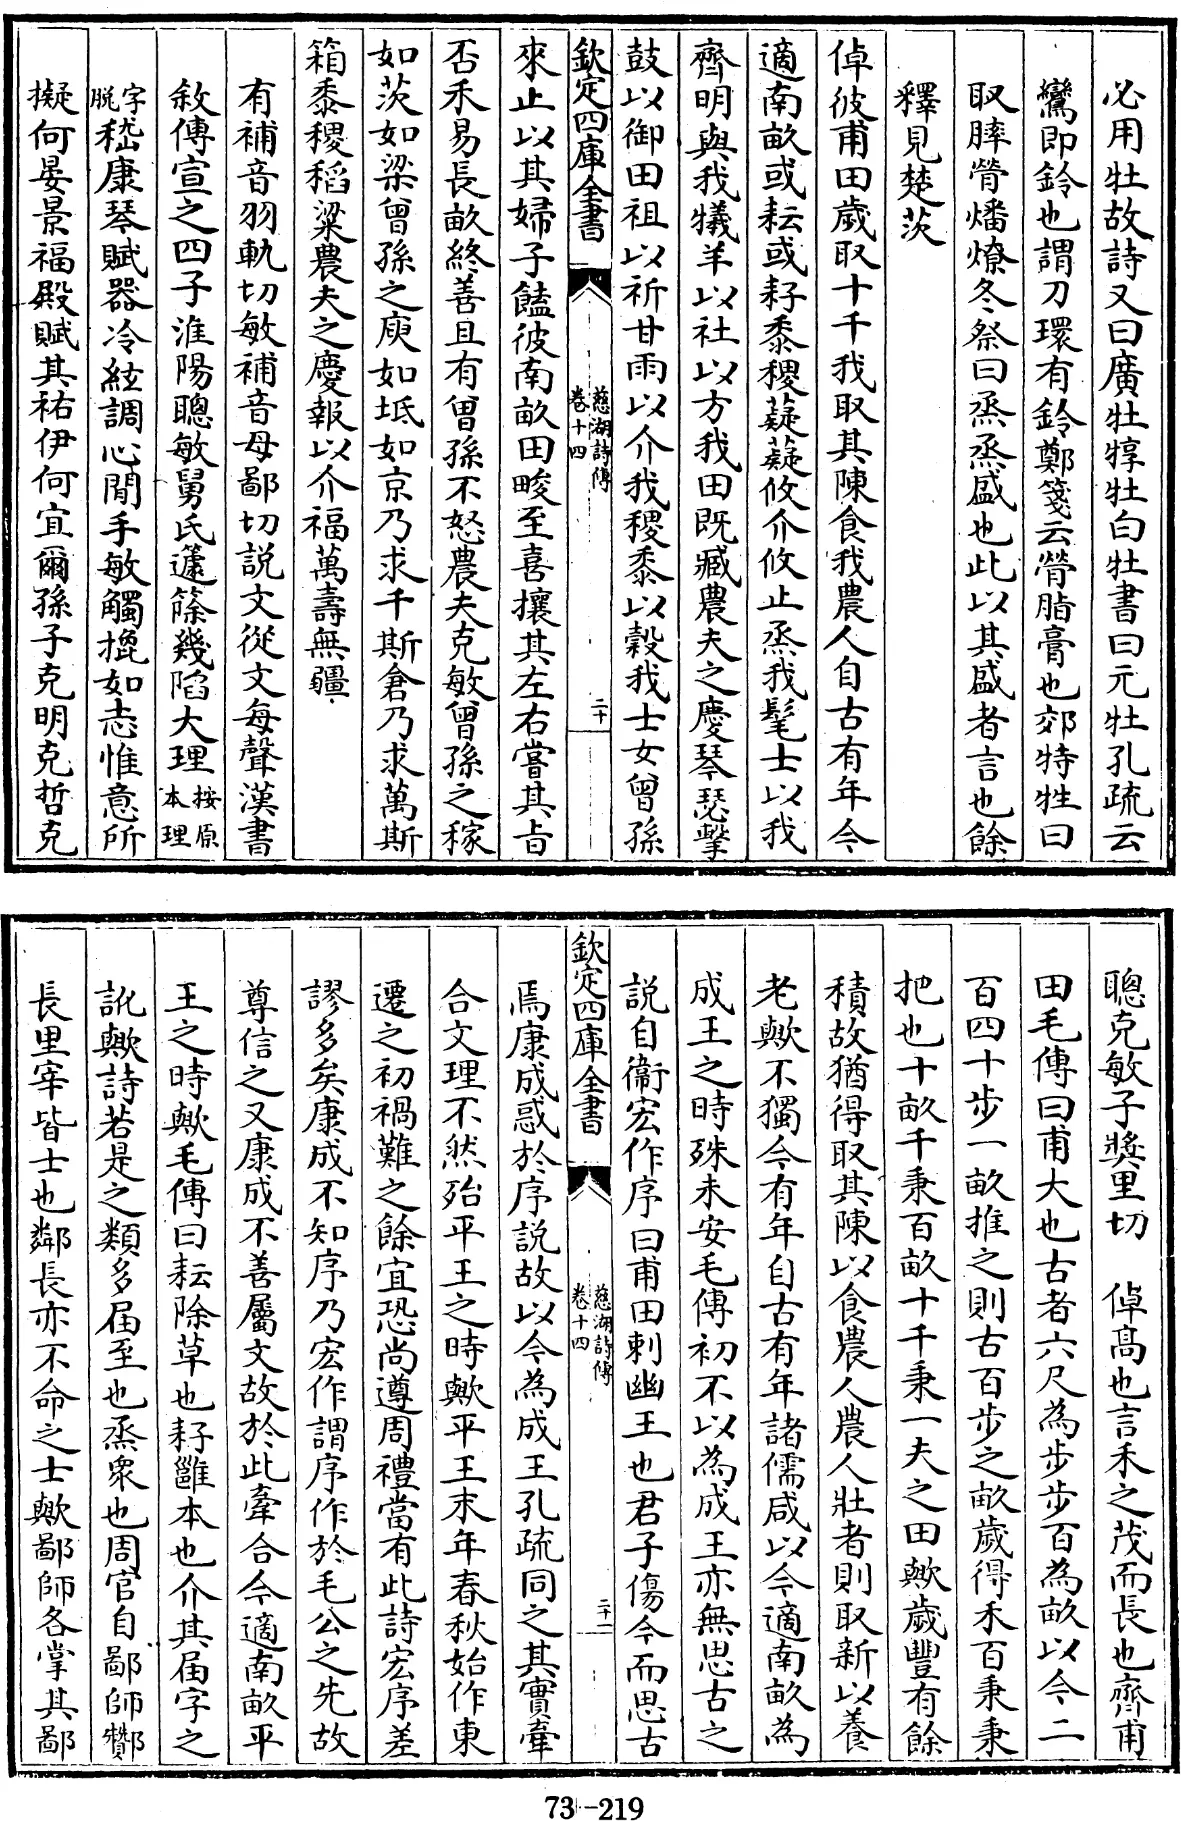 必用牡故詩又曰廣牡犉牡白牡書曰元牡孔疏云
鸞即鈴也謂刀環有鈴鄭箋云膋脂膏也郊特牲曰
取膟膋燔燎冬祭曰烝烝盛也此以其盛者言也餘
釋見楚茨
倬彼甫田歲取十千我取其陳食我農人自古有年今
適南畝或耘或耔黍稷薿薿攸介攸止烝我髦士以我
齊明與我犧羊以社以方我田既臧農夫之慶琴瑟擊
鼓以御田祖以祈甘雨以介我稷黍以穀我士女曾孫
欽定四庫全書 慈湖詩傳 卷十四 二十
來止以其婦子饁彼南畝田畯至喜攘其左右嘗其旨
否禾易長畝終善且有曾孫不怒農夫克敏曾孫之稼
如茨如梁曾孫之庾如坻如京乃求千斯倉乃求萬斯
箱黍稷稻粱農夫之慶報以介福萬壽無疆
有補音羽軌切敏補音母鄙切説文從文每聲漢書
敘傳宣之四子淮陽聰敏舅氏蘧篨幾陷大理按原本理
字脱嵇康琴賦器冷絃調心閒手敏觸㧰如志惟意所
擬何晏景福殿賦其祐伊何宜爾孫子克明克哲克
聰克敏子奬里切 倬高也言禾之茂而長也齊甫
田毛傳曰甫大也古者六尺為步步百為畝以今二
百四十步一畝推之則古百步之畝歲得禾百秉秉
把也十畝千秉百畝十千秉一夫之田歟歲豐有餘
積故猶得取其陳以食農人農人壯者則取新以養
老歟不獨今有年自古有年諸儒咸以今適南畝為
成王之時殊未安毛傳初不以為成王亦無思古之
説自衞宏作序曰甫田刺幽王也君子傷今而思古
欽定四庫全書 慈湖詩傳 卷十四 二十一
焉康成惑於序説故以今為成王孔疏同之其實牽
合文理不然殆平王之時歟平王末年春秋始作東
遷之初禍難之餘宜恐尚遵周禮當有此詩宏序差
謬多矣康成不知序乃宏作謂序作於毛公之先故
尊信之又康成不善屬文故於此牽合今適南畝平
王之時歟毛傳曰耘除草也耔雝本也介其届字之
訛歟詩若是之類多届至也烝衆也周官自鄙師酇
長里宰皆士也鄰長亦不命之士歟鄙師各掌其鄙
73-219